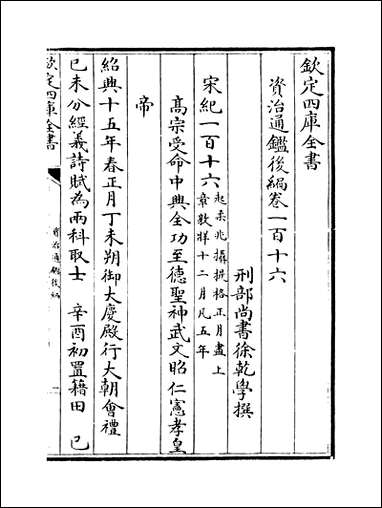 欽定四庫全書
資治通鑑後編卷一百十六
刑部尚書徐乾學撰
宋紀一百十六 起柔兆攝提格正月盡上
章敦牂十二月凡五年
高宗受命中興全功至德聖神武文昭仁憲孝皇
帝
紹興十五年春正月丁未朔御大慶殿行大朝會禮
己未分經義詩賦為兩科取士 辛酉初置籍田 己
欽定四庫全書
資治通鑑後編
一